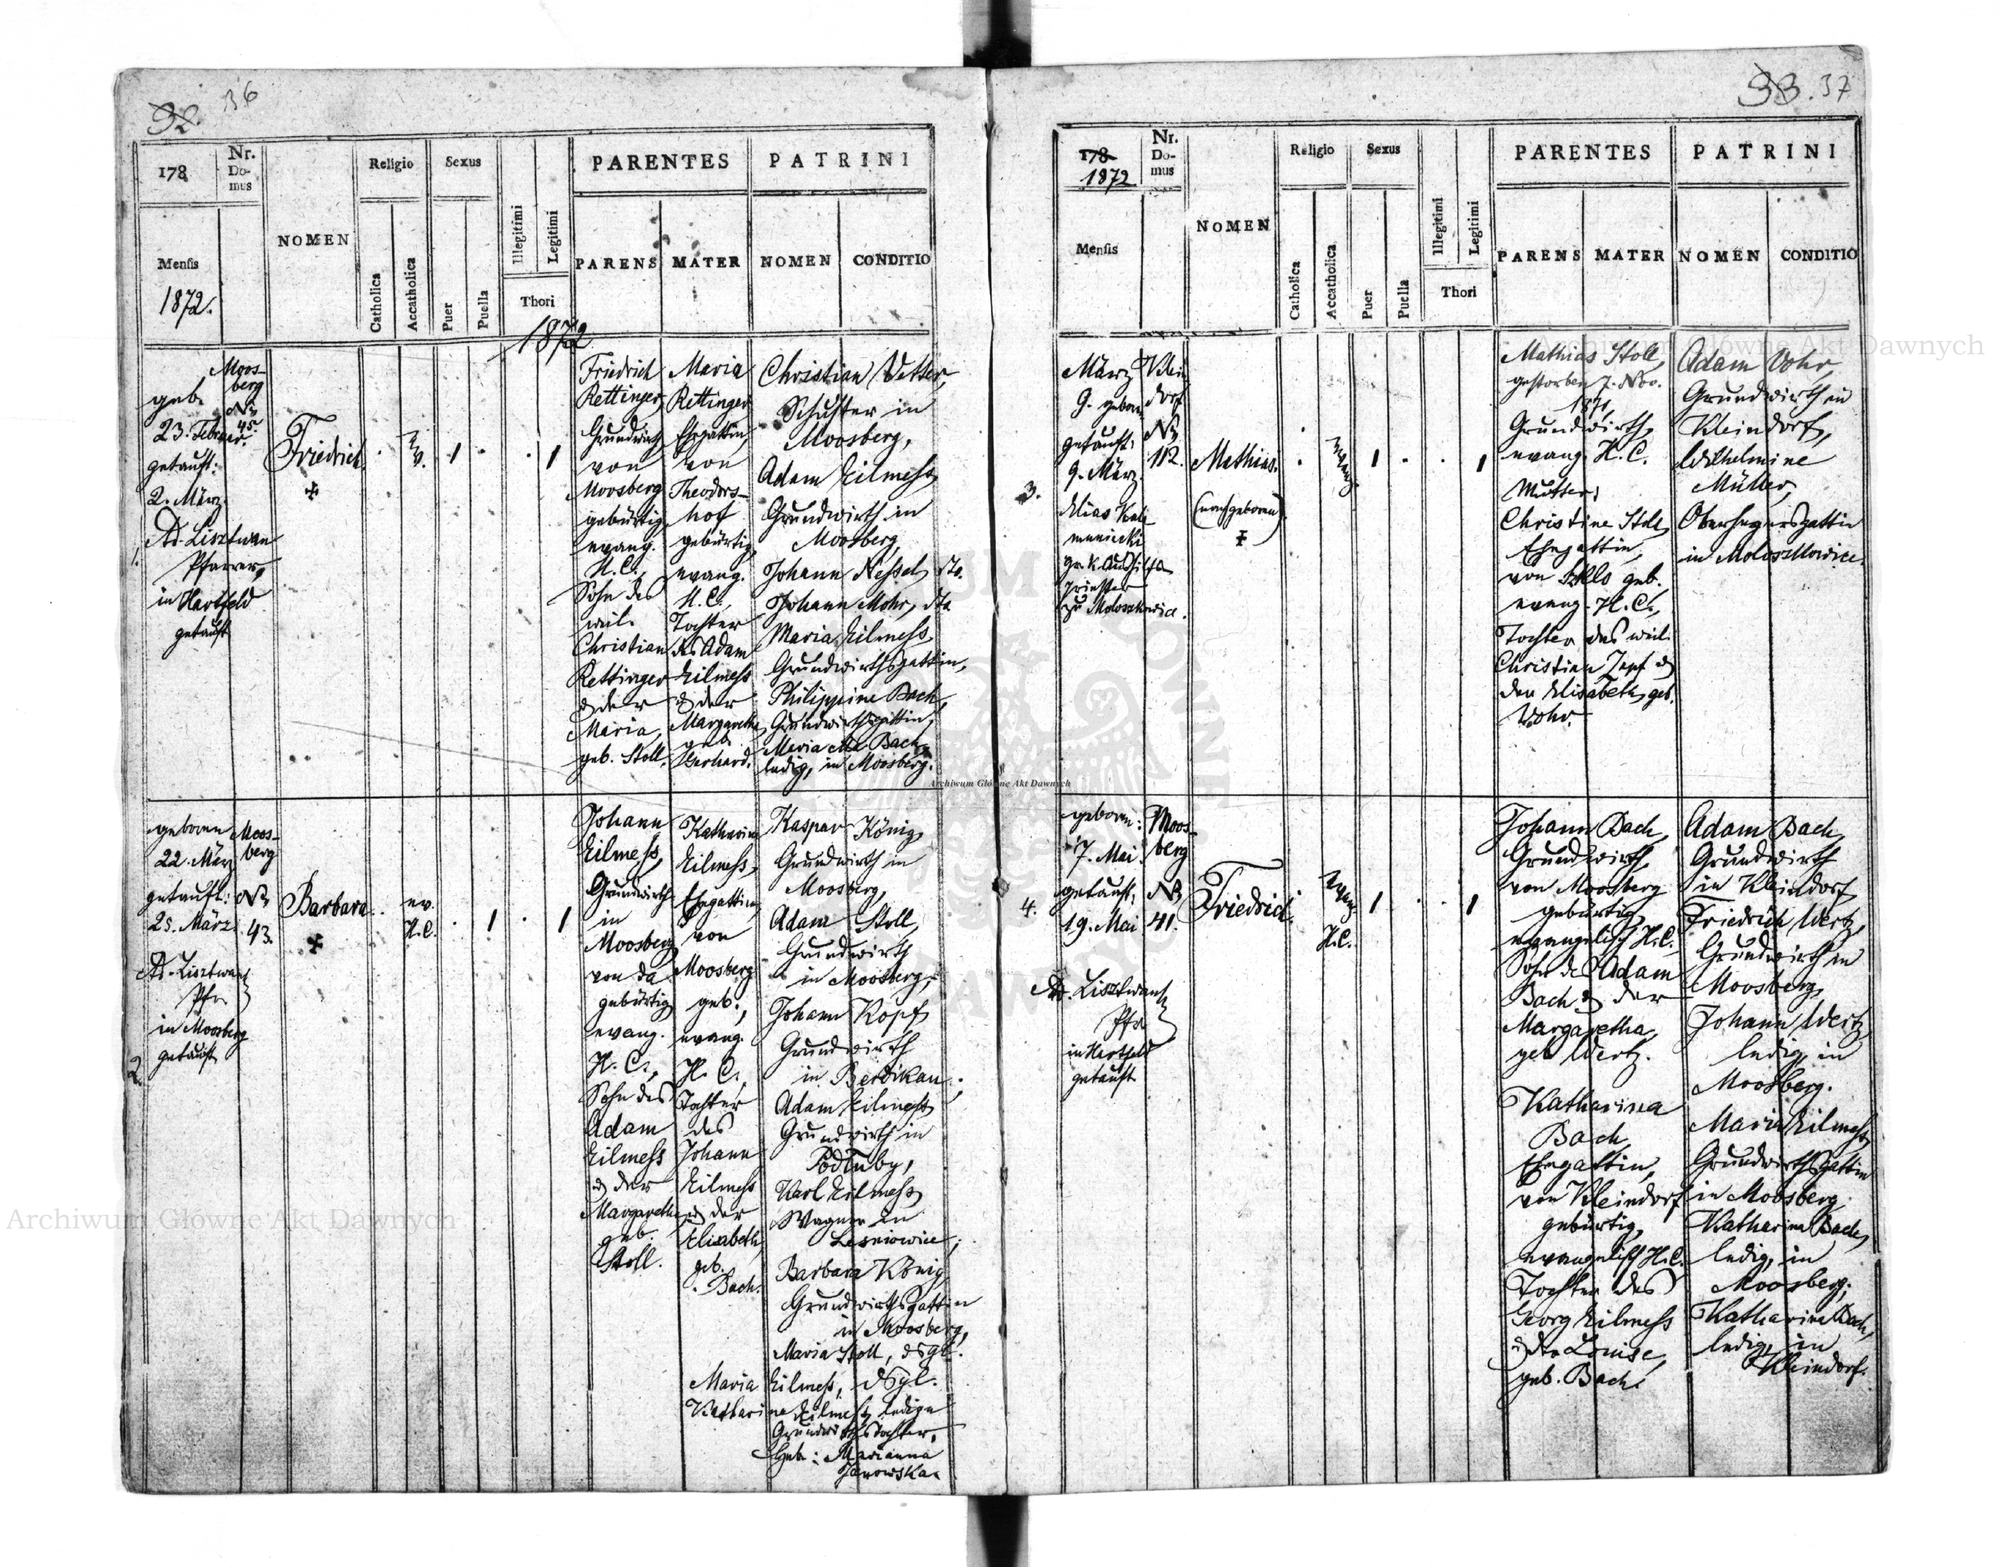 32. 36
178
Nr. Do-mus
NOMEN
Religio
Sexus
PARENTES
PATRINI
Mensis
1872.
Catholica
Accatholica
Puer
Puella
Illegitimi
Legitimi
Thori
PARENS
MATER
NOMEN
CONDITIO
1872
1.
geb.
23. Februar.
getauft:
2. März
Ad. Lisztwan
Pfarrer,
in Hartfeld
getauft
Moos-
berg
No
45.
Friedrich
ev.
Friedrich
Rettinger,
Grundwirth
von
Moosberg
gebürtig
evang.
H. C.,
Sohn des
weil.
Christian
Rettinger
& der
Maria,
geb. Stoll.
Maria
Rettinger
Ehegattin,
von
Theodors-
hof
gebürtig,
evang.
H. C.,
Tochter
des Adam
Eilmess
& der
Margaretha
geb.
Gerhard.
Christian Vetter,
Schuster in
Moosberg,
Adam Eilmess,
Grundwirth in
Moosberg,
Johann Nessel, dto.
Johann Mohr, dto
Maria Eilmess
Grundwirthsgattin,
Philippine Bach,
Grundwirthsgattin,
Maria Bach,
ledig, in Moosberg.
2.
geboren
22. März
getauft:
25. März
Ad. Lisztwan
Pfr.
in Moosberg
getauft
Moos-
berg
No
43.
Barbara.
ev.
H. C.
Johann
Eilmess,
Grundwirth
in
Moosberg
von da
gebürtig
evang.
H. C.,
Sohn des
Adam
Eilmess
& der
Margaretha
geb.
Stoll.
Katharina
Eilmess,
Ehegattin,
von
Moosberg
geb.,
evang.
H. C.,
Tochter
des
Johann
Eilmess
& der
Elisabeth,
geb.
Bach.
Kaspar König,
Grundwirth in
Moosberg,
Adam Stoll,
Grundwirth
in Moosberg,
Johann Kopf
Grundwirth
in Berdikau;
Adam Eilmess
Grundwirth in
Podluby,
Karl Eilmess,
Wagner in
Lesniowice;
Barbara König
Grundwirthsgattin
in Moosberg,
Maria Stoll, dsgl.
Maria Eilmess, dsgl.
Katharina Eilmess, ledige
Grundwirthstochter.
Heb.: Marianna
Janowska.
33. 37
178
1872
Nr. Do-mus
Mensis
NOMEN
Religio
Sexus
PARENTES
PATRINI
Catholica
Accatholica
Puer
Puella
Illegitimi
Legitimi
Thori
PARENS
MATER
NOMEN
CONDITIO
3.
März
9. geboren
getauft:
9. März
Elias Kale
gr. k. Aushilfs
priester
zu Moloszkowice.
Klein
dorf
No
112.
Mathias.
(nachgeboren)
evang.
Mathias Stoll,
gestorben 7. Nov.
1871
Grundwirth,
evang. H. C.
Mutter:
Christine Stoll,
Ehegattin,
evang. H. C.,
Tochter des weil.
Christian Zapf &
der Elisabeth, geb.
Vohr.
Adam Vohr,
Grundwirth in
Kleindorf,
Wilhelmine
Müller,
in Moloszkowice.
4.
geboren:
7. Mai
getauft:
19. Mai
Ad. Lisztwan
Pfr.
in Hartfeld
getauft
Moos-
berg
No
41.
Friedrich.
evang.
H. C.
Johann Bach,
Grundwirth,
von Moosberg
gebürtig
evangelisch H. C.
Sohn des Adam
Bach & der
Margaretha,
geb Wertz.
Katharina
Bach,
Ehegattin,
von Kleindorf
gebürtig,
evangelisch H. C.
Tochter des
Georg Eilmess
& der Louise,
geb. Bach.
Adam Bach,
Grundwirth
in Kleindorf
Friedrich Wertz,
Grundwirth in
Moosberg,
Johann Wertz
ledig, in
Moosberg.
Maria Eilmess,
Grundwirthsgattin
in Moosberg
Katharina Bach,
ledig, in
Moosberg;
Katharina Bach,
ledig, in
Kleindorf.
Archiwum Główne Akt Dawnych
Archiwum Główne Akt Dawnych
Archiwum Główne Akt Dawnych